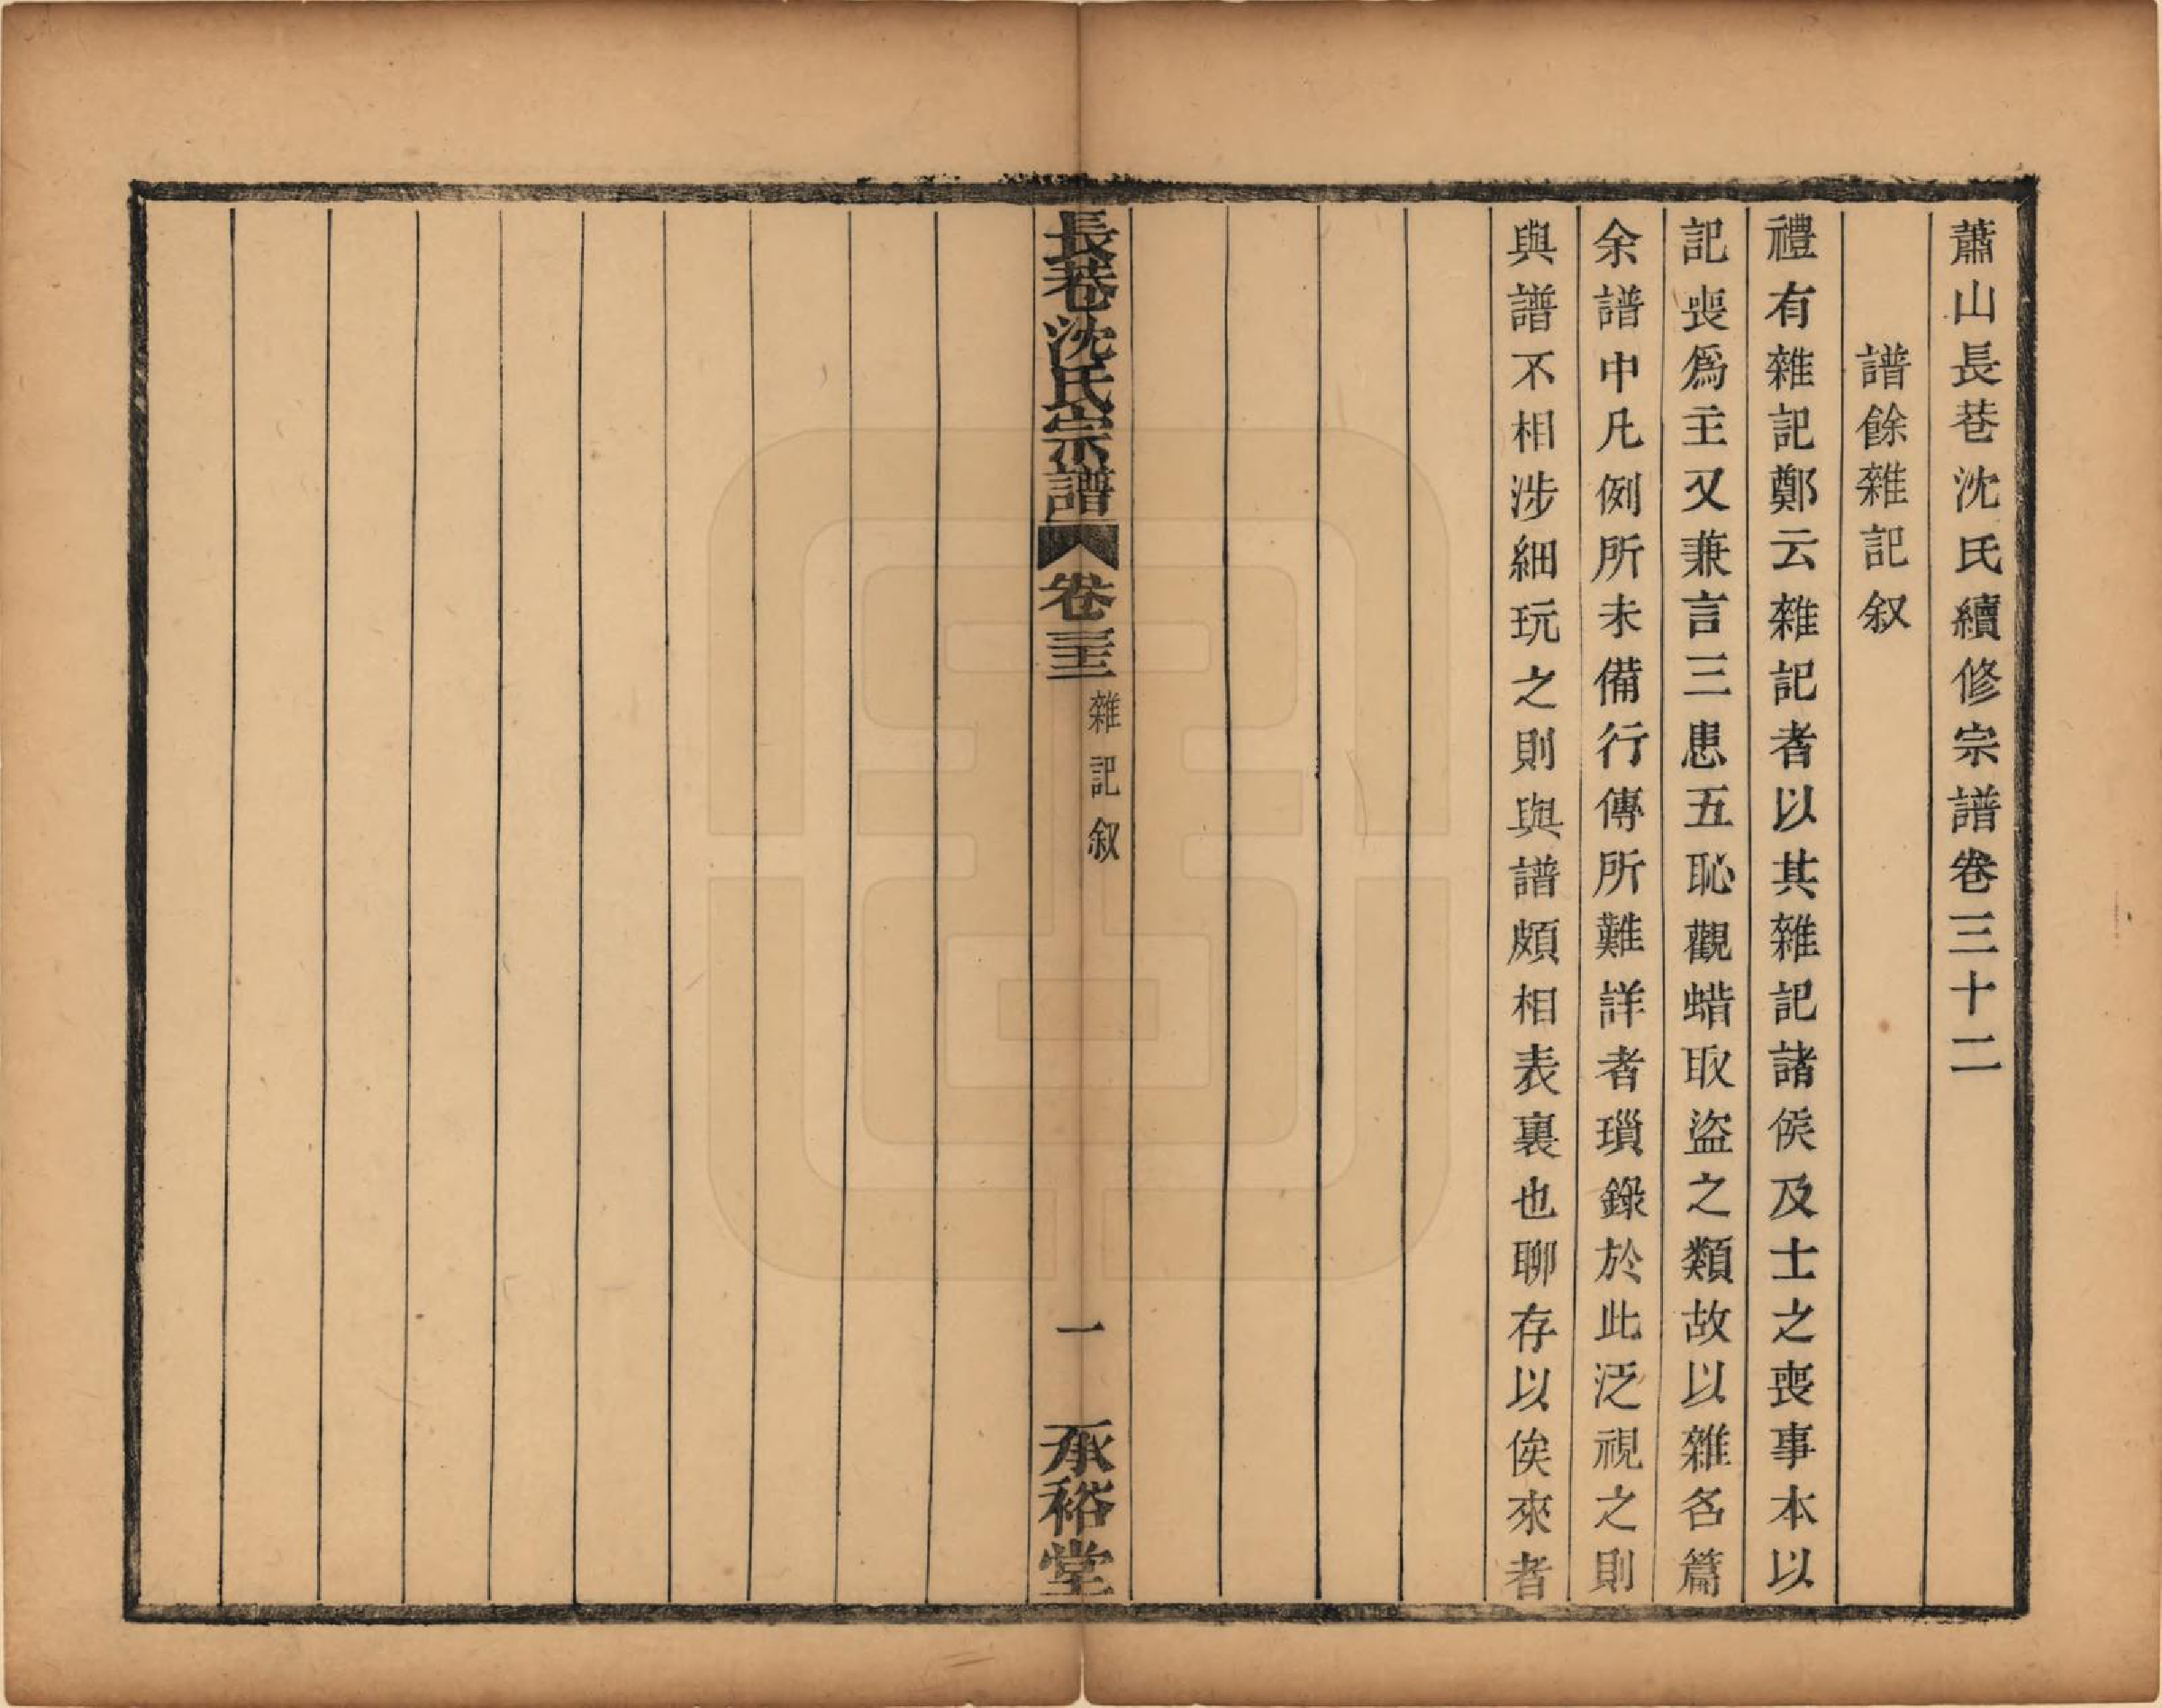 蕭山長巷沈氏續修宗譜卷三十二
譜餘雜記叙
禮有雜記鄭云雜記者以其雜記諸侯及士之喪事本以
記喪爲主又兼言三患五恥觀蜡取盜之類故以雜名篇
余譜中凡例所未備行傳所難詳者瑣錄於此泛視之則
與譜不相涉細玩之則與譜頗相表裏也聊存以俟來者
長巷沈氏宗譜 卷三十二 雜記叙 一 承裕堂